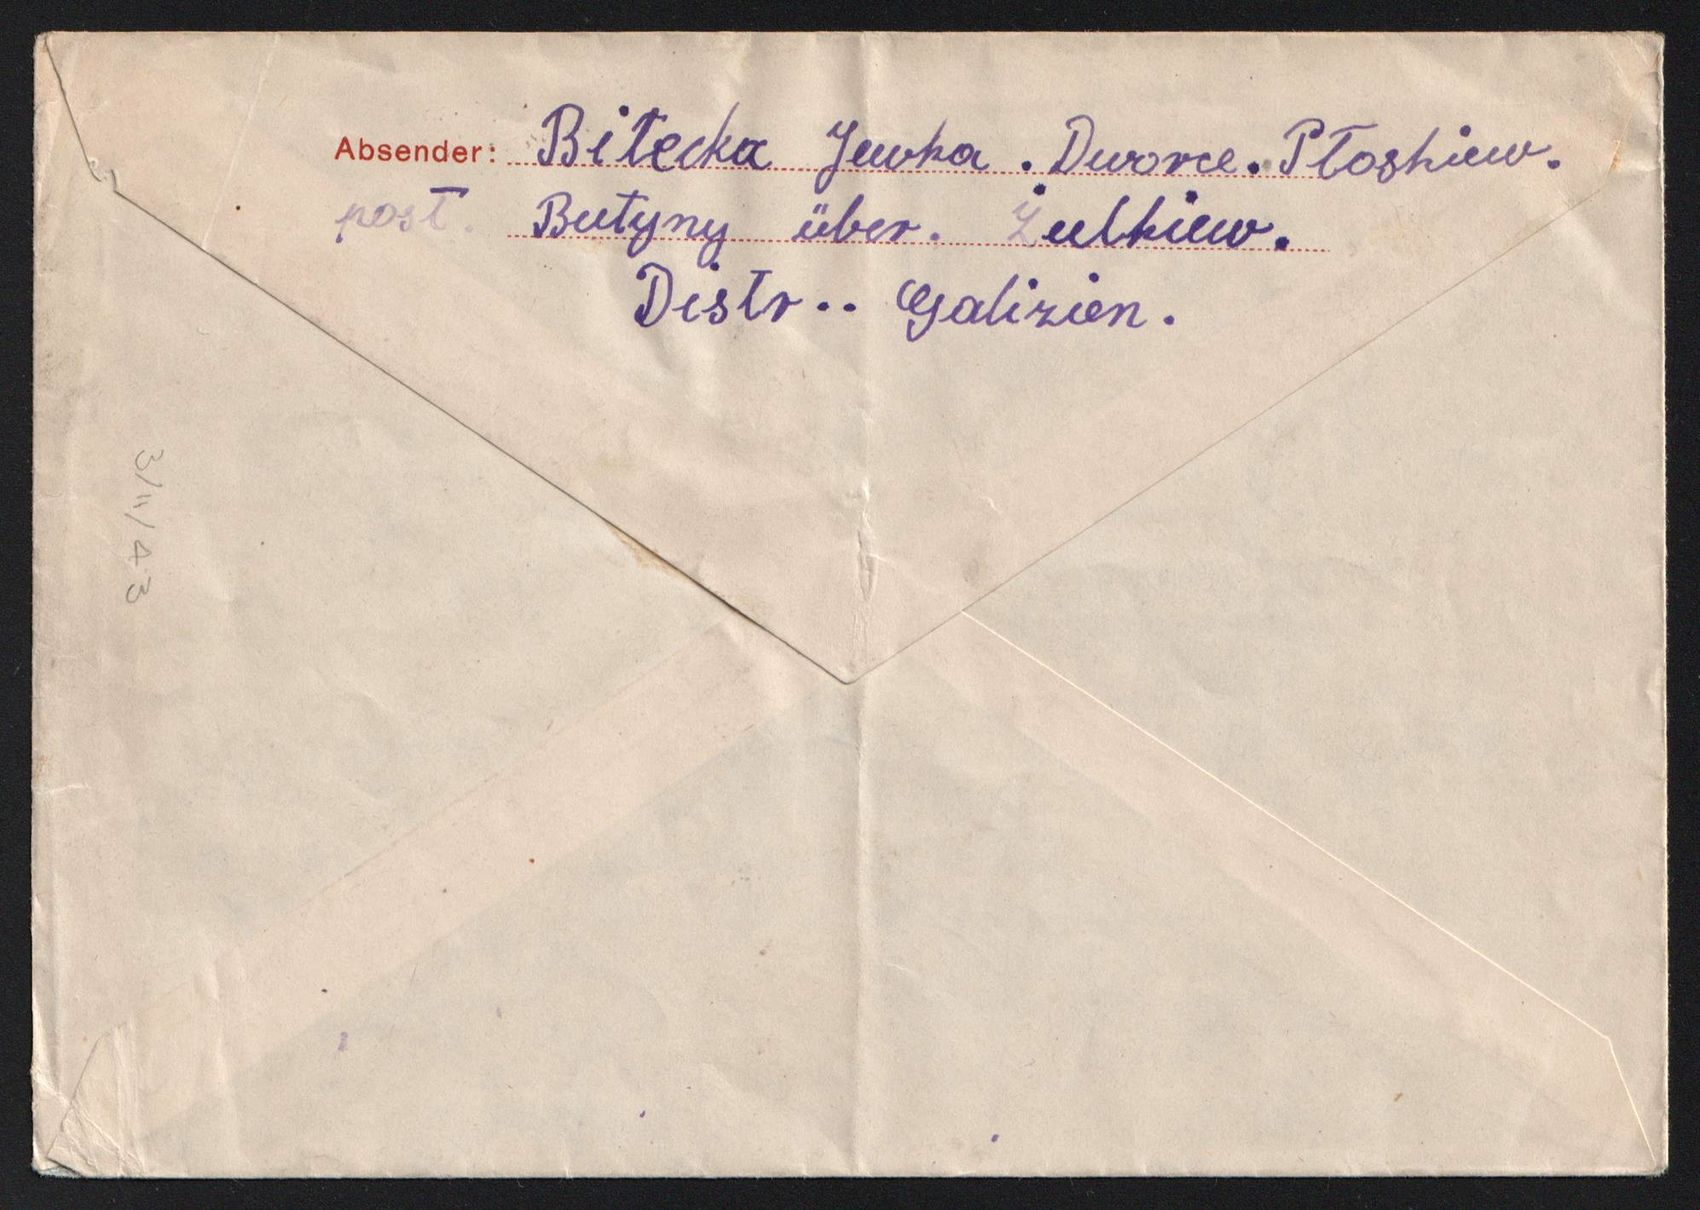 Absender: Biłecka Jewka. Dworce. Płoskiew.
post. Butyny über. Żulkiew.
Distr.. Galizien.
3/11/43